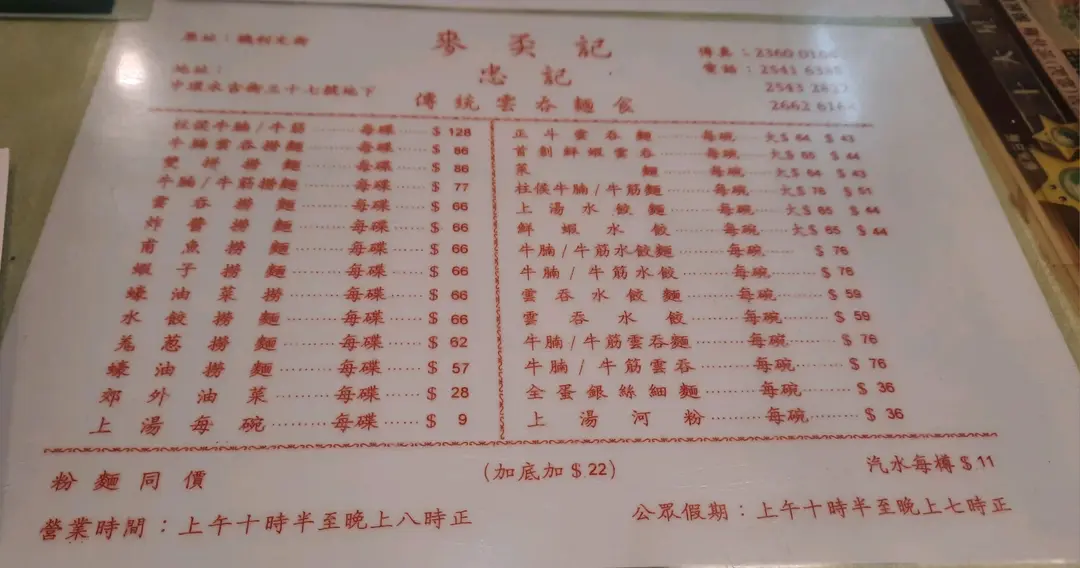 原址：機利文街
麥奀記
忠記
傳統雲吞麵食
地址：
中環永吉街三十七號地下
傳真：2360
電話：2541
2543
2662
柱侯牛腩/牛筋 每碟 $ 128
牛腩雲吞撈麵 每碟 $ 86
雙拼撈麵 每碟 $ 86
牛腩/牛筋撈麵 每碟 $ 77
雲吞撈麵 每碟 $ 66
炸醬撈麵 每碟 $ 66
甫魚撈麵 每碟 $ 66
蝦子撈麵 每碟 $ 66
蠔油菜撈 每碟 $ 66
水餃撈麵 每碟 $ 66
羗葱撈麵 每碟 $ 62
蠔油撈麵 每碟 $ 57
郊外油菜 每碟 $ 28
上湯每碗 每碟 $ 9
正斗雲吞麵 每碗 大$ 64 $ 43
首創鮮蝦雲吞 每碗 大$ 65 $ 44
菜麵 每碗 大$ 64 $ 43
柱侯牛腩/牛筋麵 每碗 大$ 76 $ 51
上湯水餃麵 每碗 大$ 65 $ 44
鮮蝦水餃 每碗 大$ 65 $ 44
牛腩/牛筋水餃麵 每碗 $ 76
牛腩/牛筋水餃 每碗 $ 76
雲吞水餃麵 每碗 $ 59
雲吞水餃 每碗 $ 59
牛腩/牛筋雲吞麵 每碗 $ 76
牛腩/牛筋雲吞 每碗 $ 76
全蛋銀絲細麵 每碗 $ 36
上湯河粉 每碗 $ 36
粉麵同價
(加底加 $ 22)
汽水每樽 $ 11
營業時間：上午十時半至晚上八時正
公眾假期：上午十時半至晚上七時正